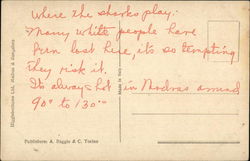 where the sharks play.
Many white people have
been lost here, its so tempting
they risk it.
Its always hot in Madras around
90° to 130°
Higginbothams Ltd, Madras & Bangalore
Made in Italy
Publishers: A. Baggio & C. Torino